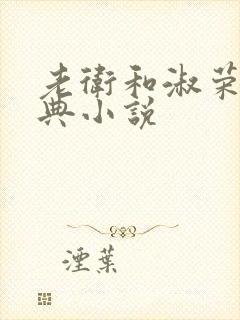 老衛和淑荣
典小説
湮葉